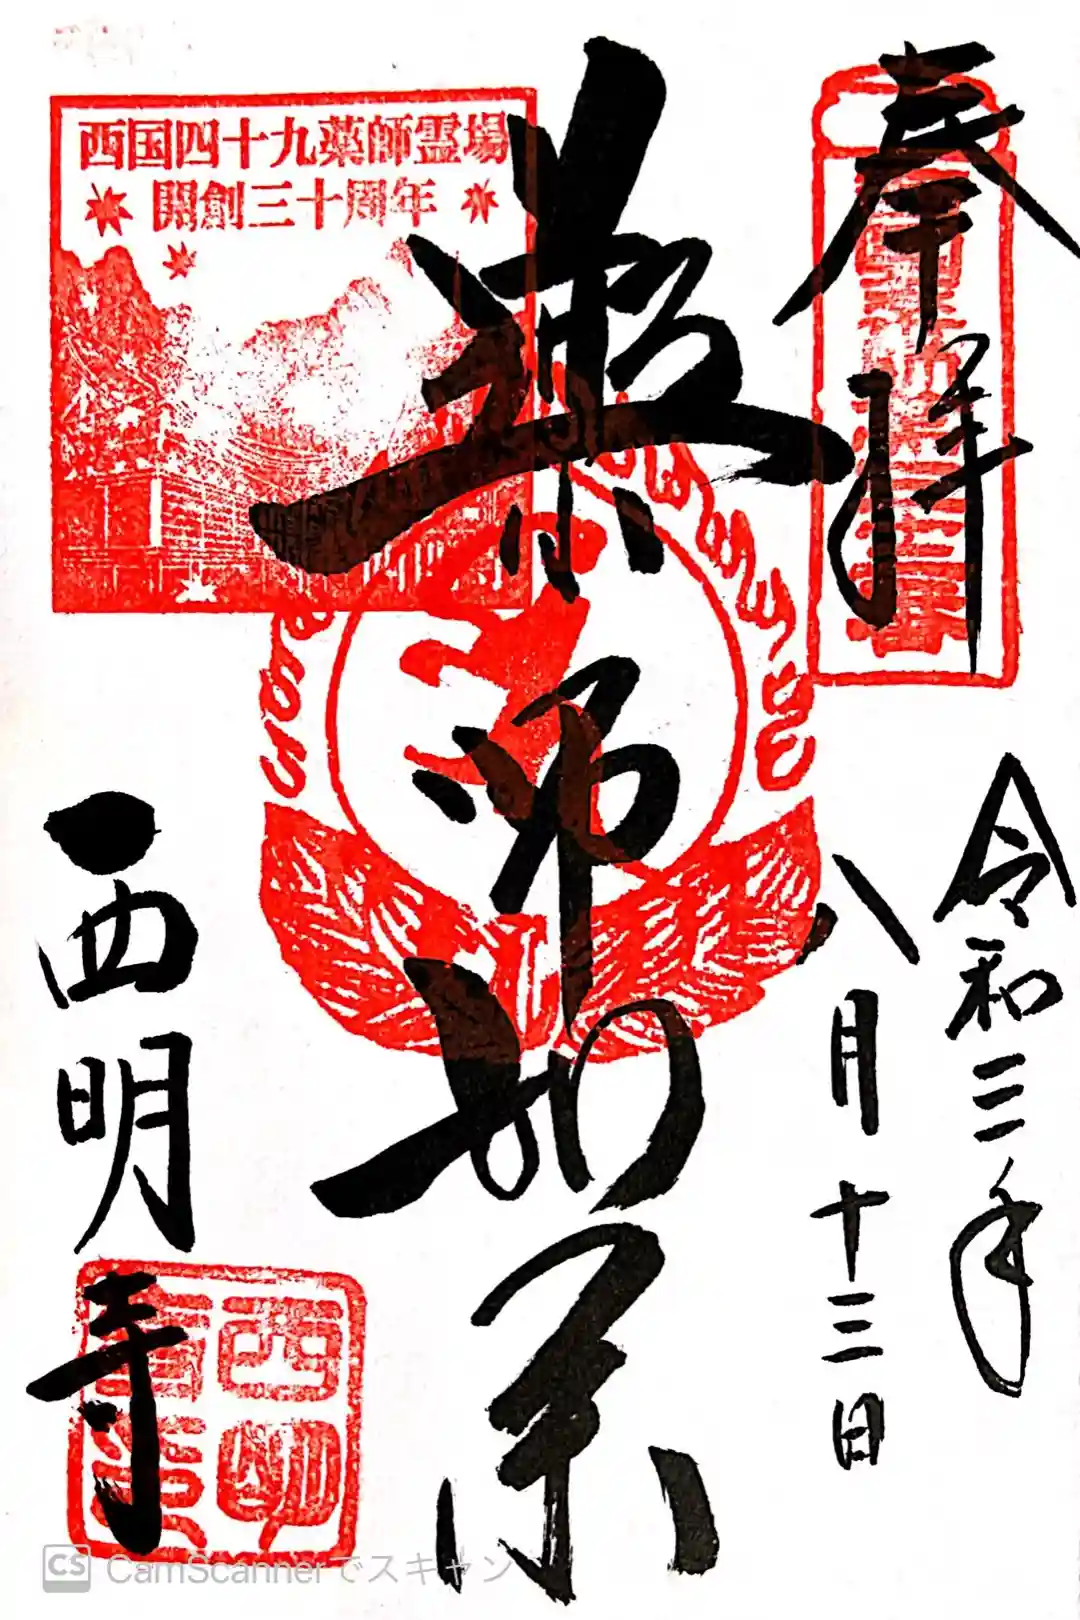 奉拝
令和三年
八月十三日
西国四十九薬師霊場
開創三十周年
薬師如来
西明寺
西明
寺印
CS CamScannerでスキャン